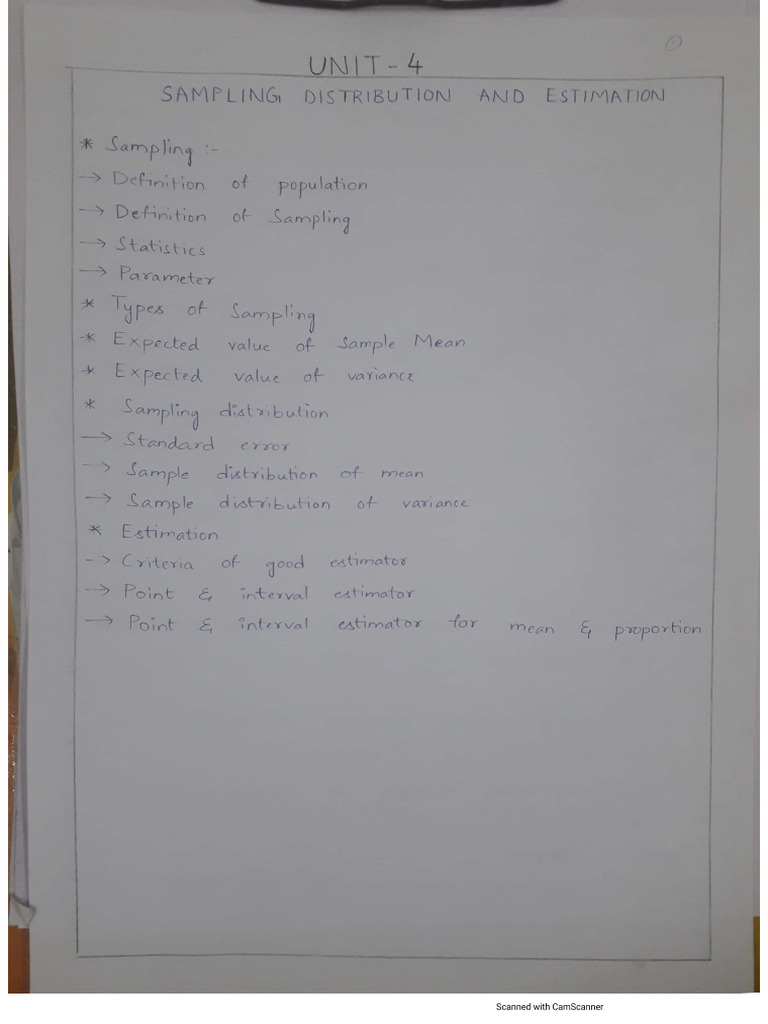 ①
UNIT - 4
SAMPLING DISTRIBUTION AND ESTIMATION
* Sampling :-
→ Definition of population
→ Definition of Sampling
→ Statistics
→ Parameter
* Types of Sampling
* Expected value of Sample Mean
* Expected value of variance
* Sampling distribution
→ Standard error
→ Sample distribution of mean
→ Sample distribution of variance
* Estimation
→ Criteria of good estimator
→ Point & interval estimator
→ Point & interval estimator for mean & proportion
Scanned with CamScanner